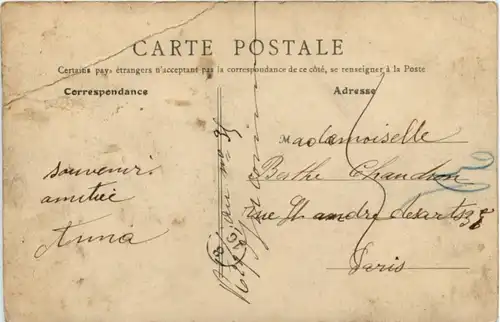 CARTE POSTALE
Certains pays étrangers n'acceptant pas la correspondance de ce côté, se renseigner à la Poste
Correspondance
Adresse
souvenir
amitiée
Anna
Mademoiselle
Berthe Chaudron
rue St andré des arts
Paris